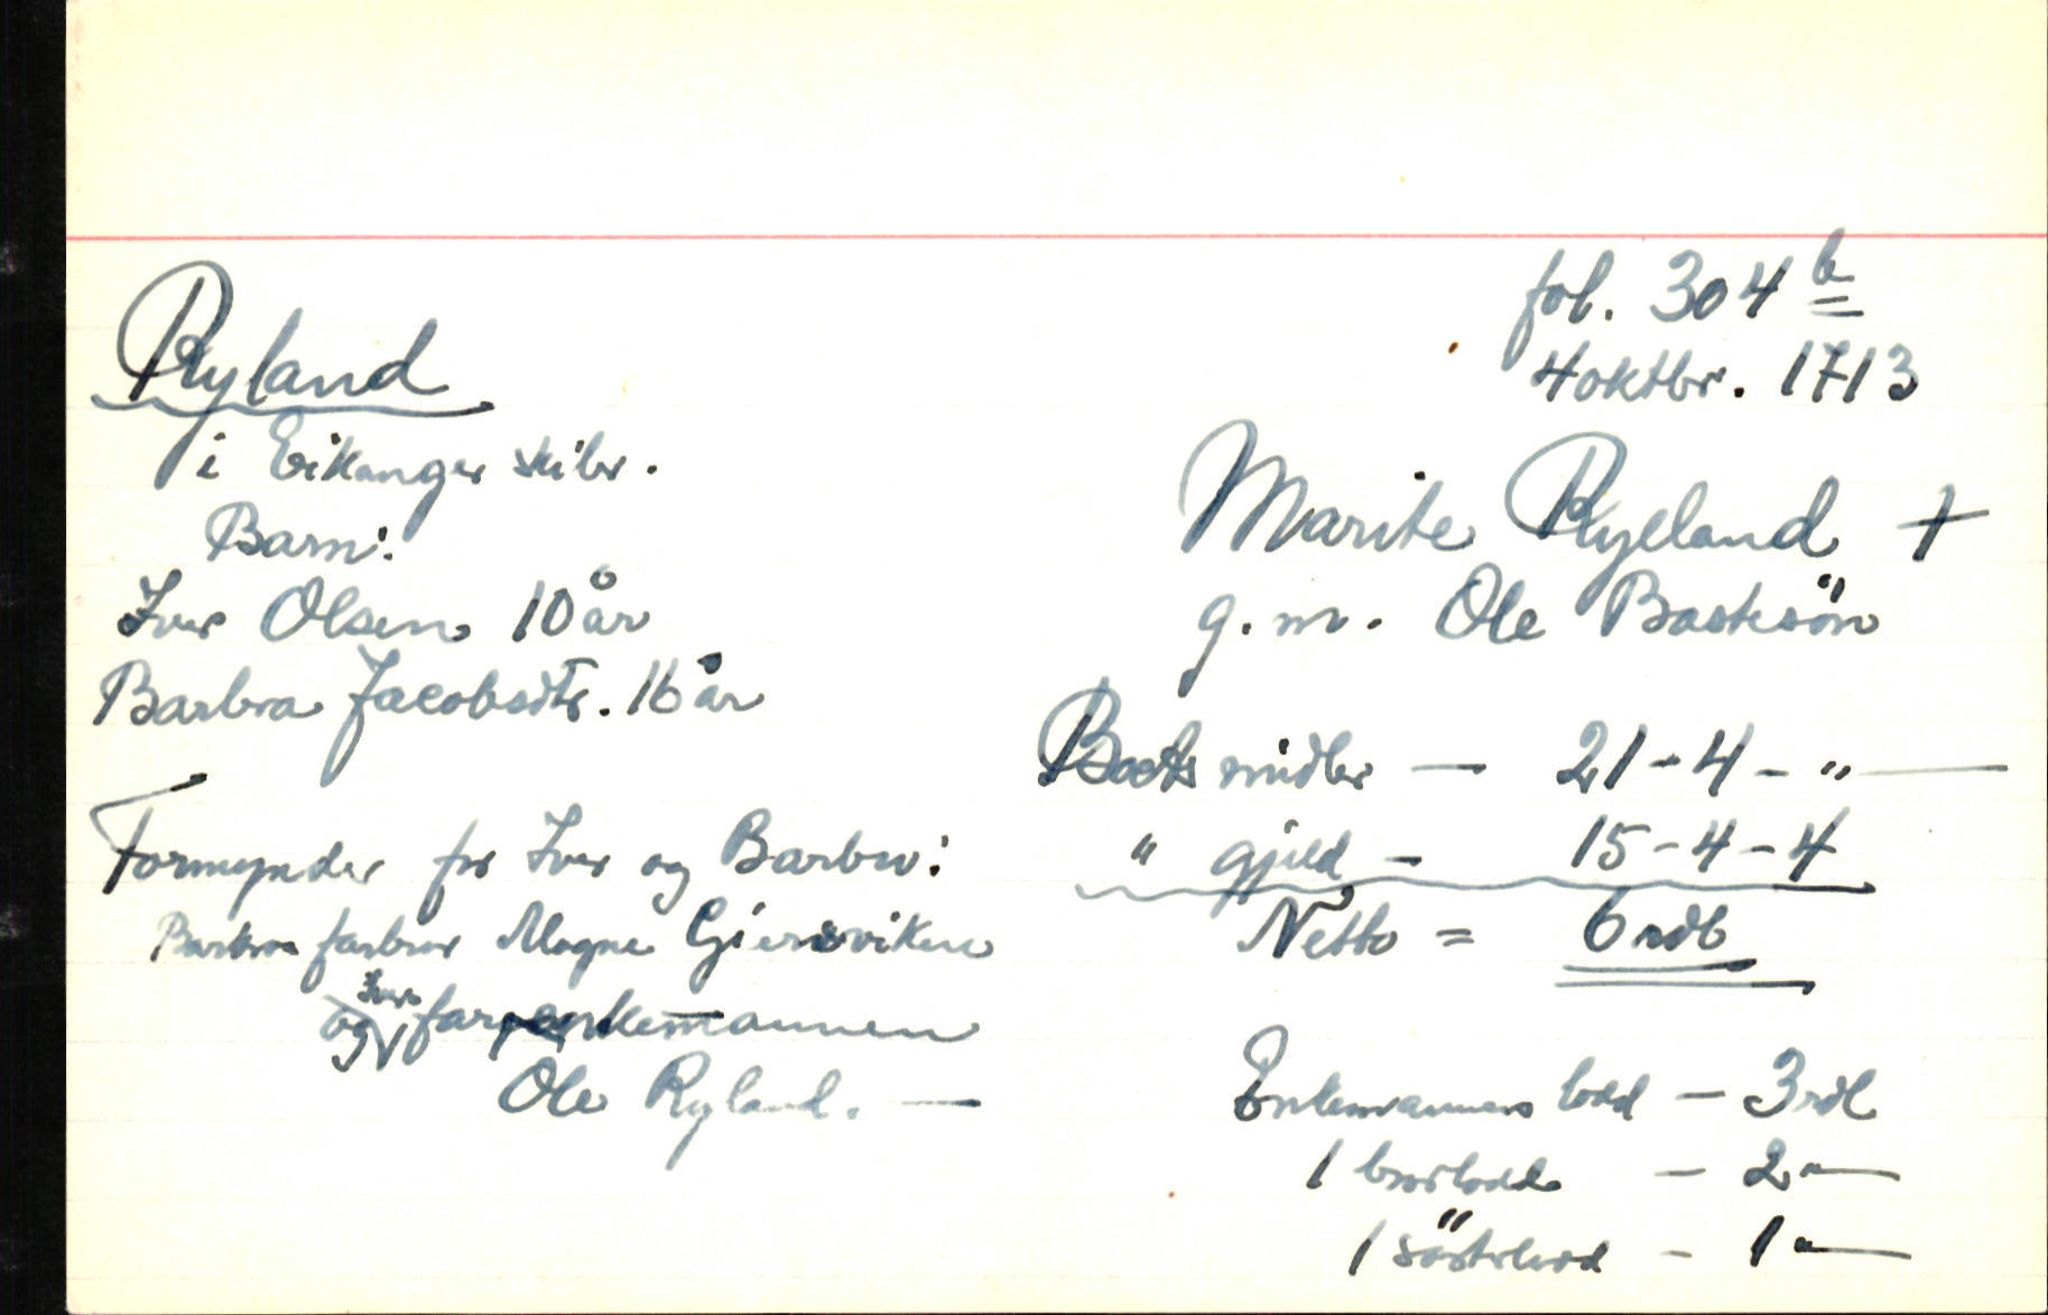 fol. 304 b
4 oktbr. 1713
Ryland
i Eikanger skibr.
Barn:
Iver Olsen 10 år
Barbra Jacobsdtr. 16 år
Formynder for Iver og Barbro:
Barbros farbror Magne Gjersviken
og Ivers far enkemannen
Ole Ryland. —
Marite Ryeland +
g. m. Ole Bastesön
Boets midler — 21 - 4 - " —
" gjeld - 15 - 4 - 4
Netto = 6 rdl
Enkemannens lodd — 3 rdl
1 brorlodd — 2 " —
1 sösterlodd - 1 " —